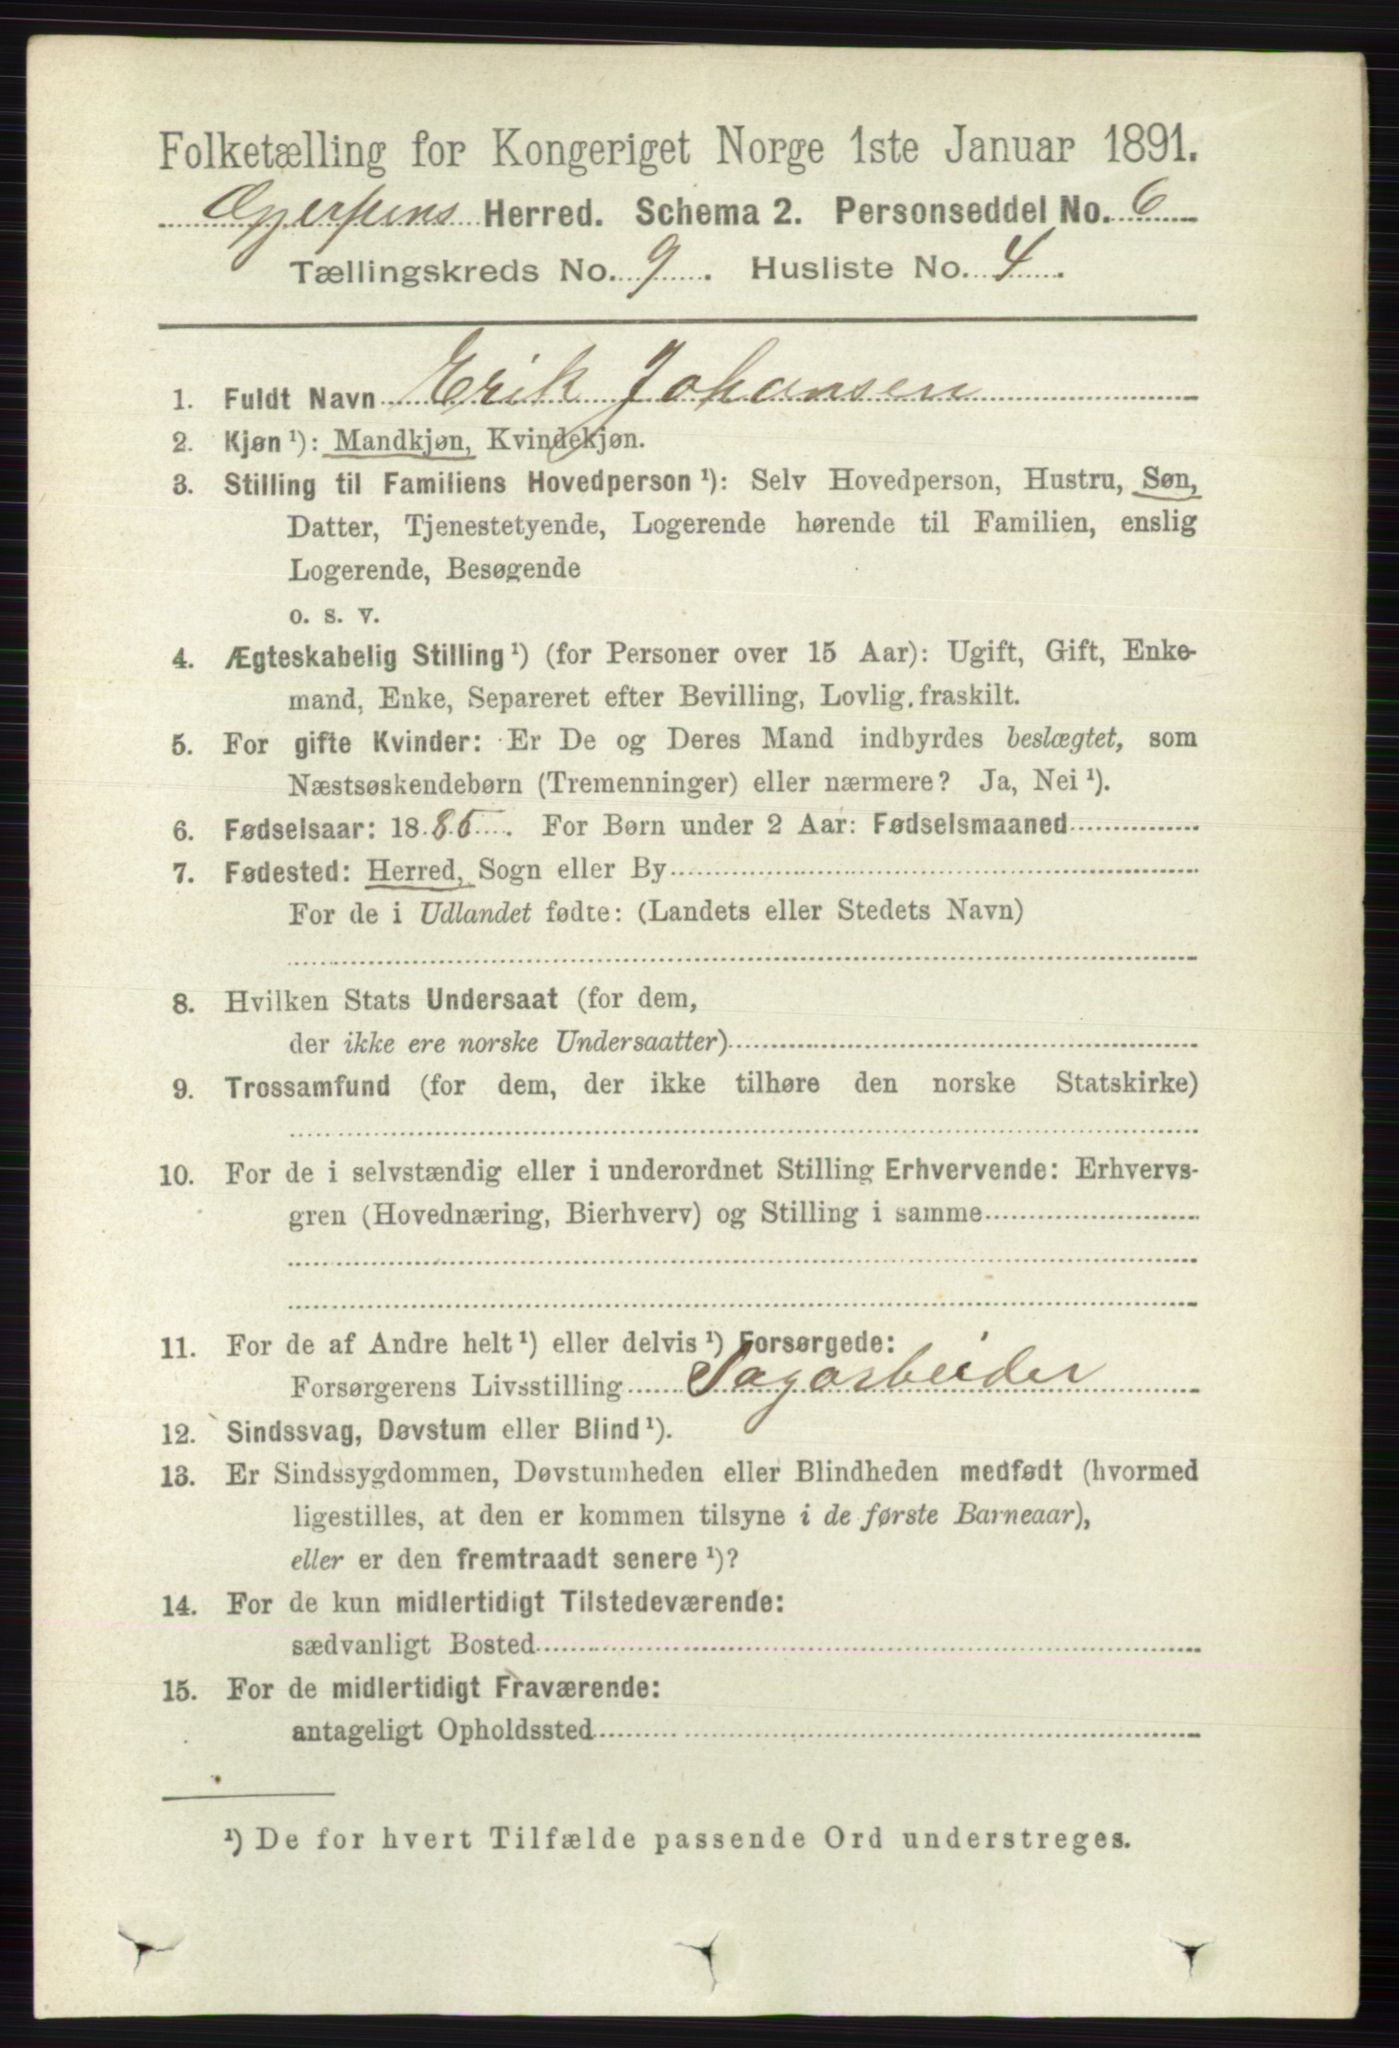 Folketælling for Kongeriget Norge 1ste Januar 1891.
Gjerpens Herred. Schema 2. Personseddel No. 6
Tællingskreds No. 9. Husliste No. 4.
1. Fuldt Navn Erik Johansen
2. Kjøn ¹): Mandkjøn, Kvindekjøn.
3. Stilling til Familiens Hovedperson ¹): Selv Hovedperson, Hustru, Søn,
Datter, Tjenestetyende, Logerende hørende til Familien, enslig
Logerende, Besøgende
o. s. v.
4. Ægteskabelig Stilling ¹) (for Personer over 15 Aar): Ugift, Gift, Enke-
mand, Enke, Separeret efter Bevilling, Lovlig fraskilt.
5. For gifte Kvinder: Er De og Deres Mand indbyrdes beslægtet, som
Næstsøskendebørn (Tremenninger) eller nærmere? Ja, Nei ¹).
6. Fødselsaar: 1885. For Børn under 2 Aar: Fødselsmaaned
7. Fødested: Herred, Sogn eller By
For de i Udlandet fødte: (Landets eller Stedets Navn)
8. Hvilken Stats Undersaat (for dem,
der ikke ere norske Undersaatter)
9. Trossamfund (for dem, der ikke tilhøre den norske Statskirke)
10. For de i selvstændig eller i underordnet Stilling Erhvervende: Erhvervs-
gren (Hovednæring, Bierhverv) og Stilling i samme
11. For de af Andre helt ¹) eller delvis ¹) Forsørgede:
Forsørgerens Livsstilling Sagarbeider
12. Sindssvag, Døvstum eller Blind ¹).
13. Er Sindssygdommen, Døvstumheden eller Blindheden medfødt (hvormed
ligestilles, at den er kommen tilsyne i de første Barneaar),
eller er den fremtraadt senere ¹)?
14. For de kun midlertidigt Tilstedeværende:
sædvanligt Bosted
15. For de midlertidigt Fraværende:
antageligt Opholdssted
¹) De for hvert Tilfælde passende Ord understreges.